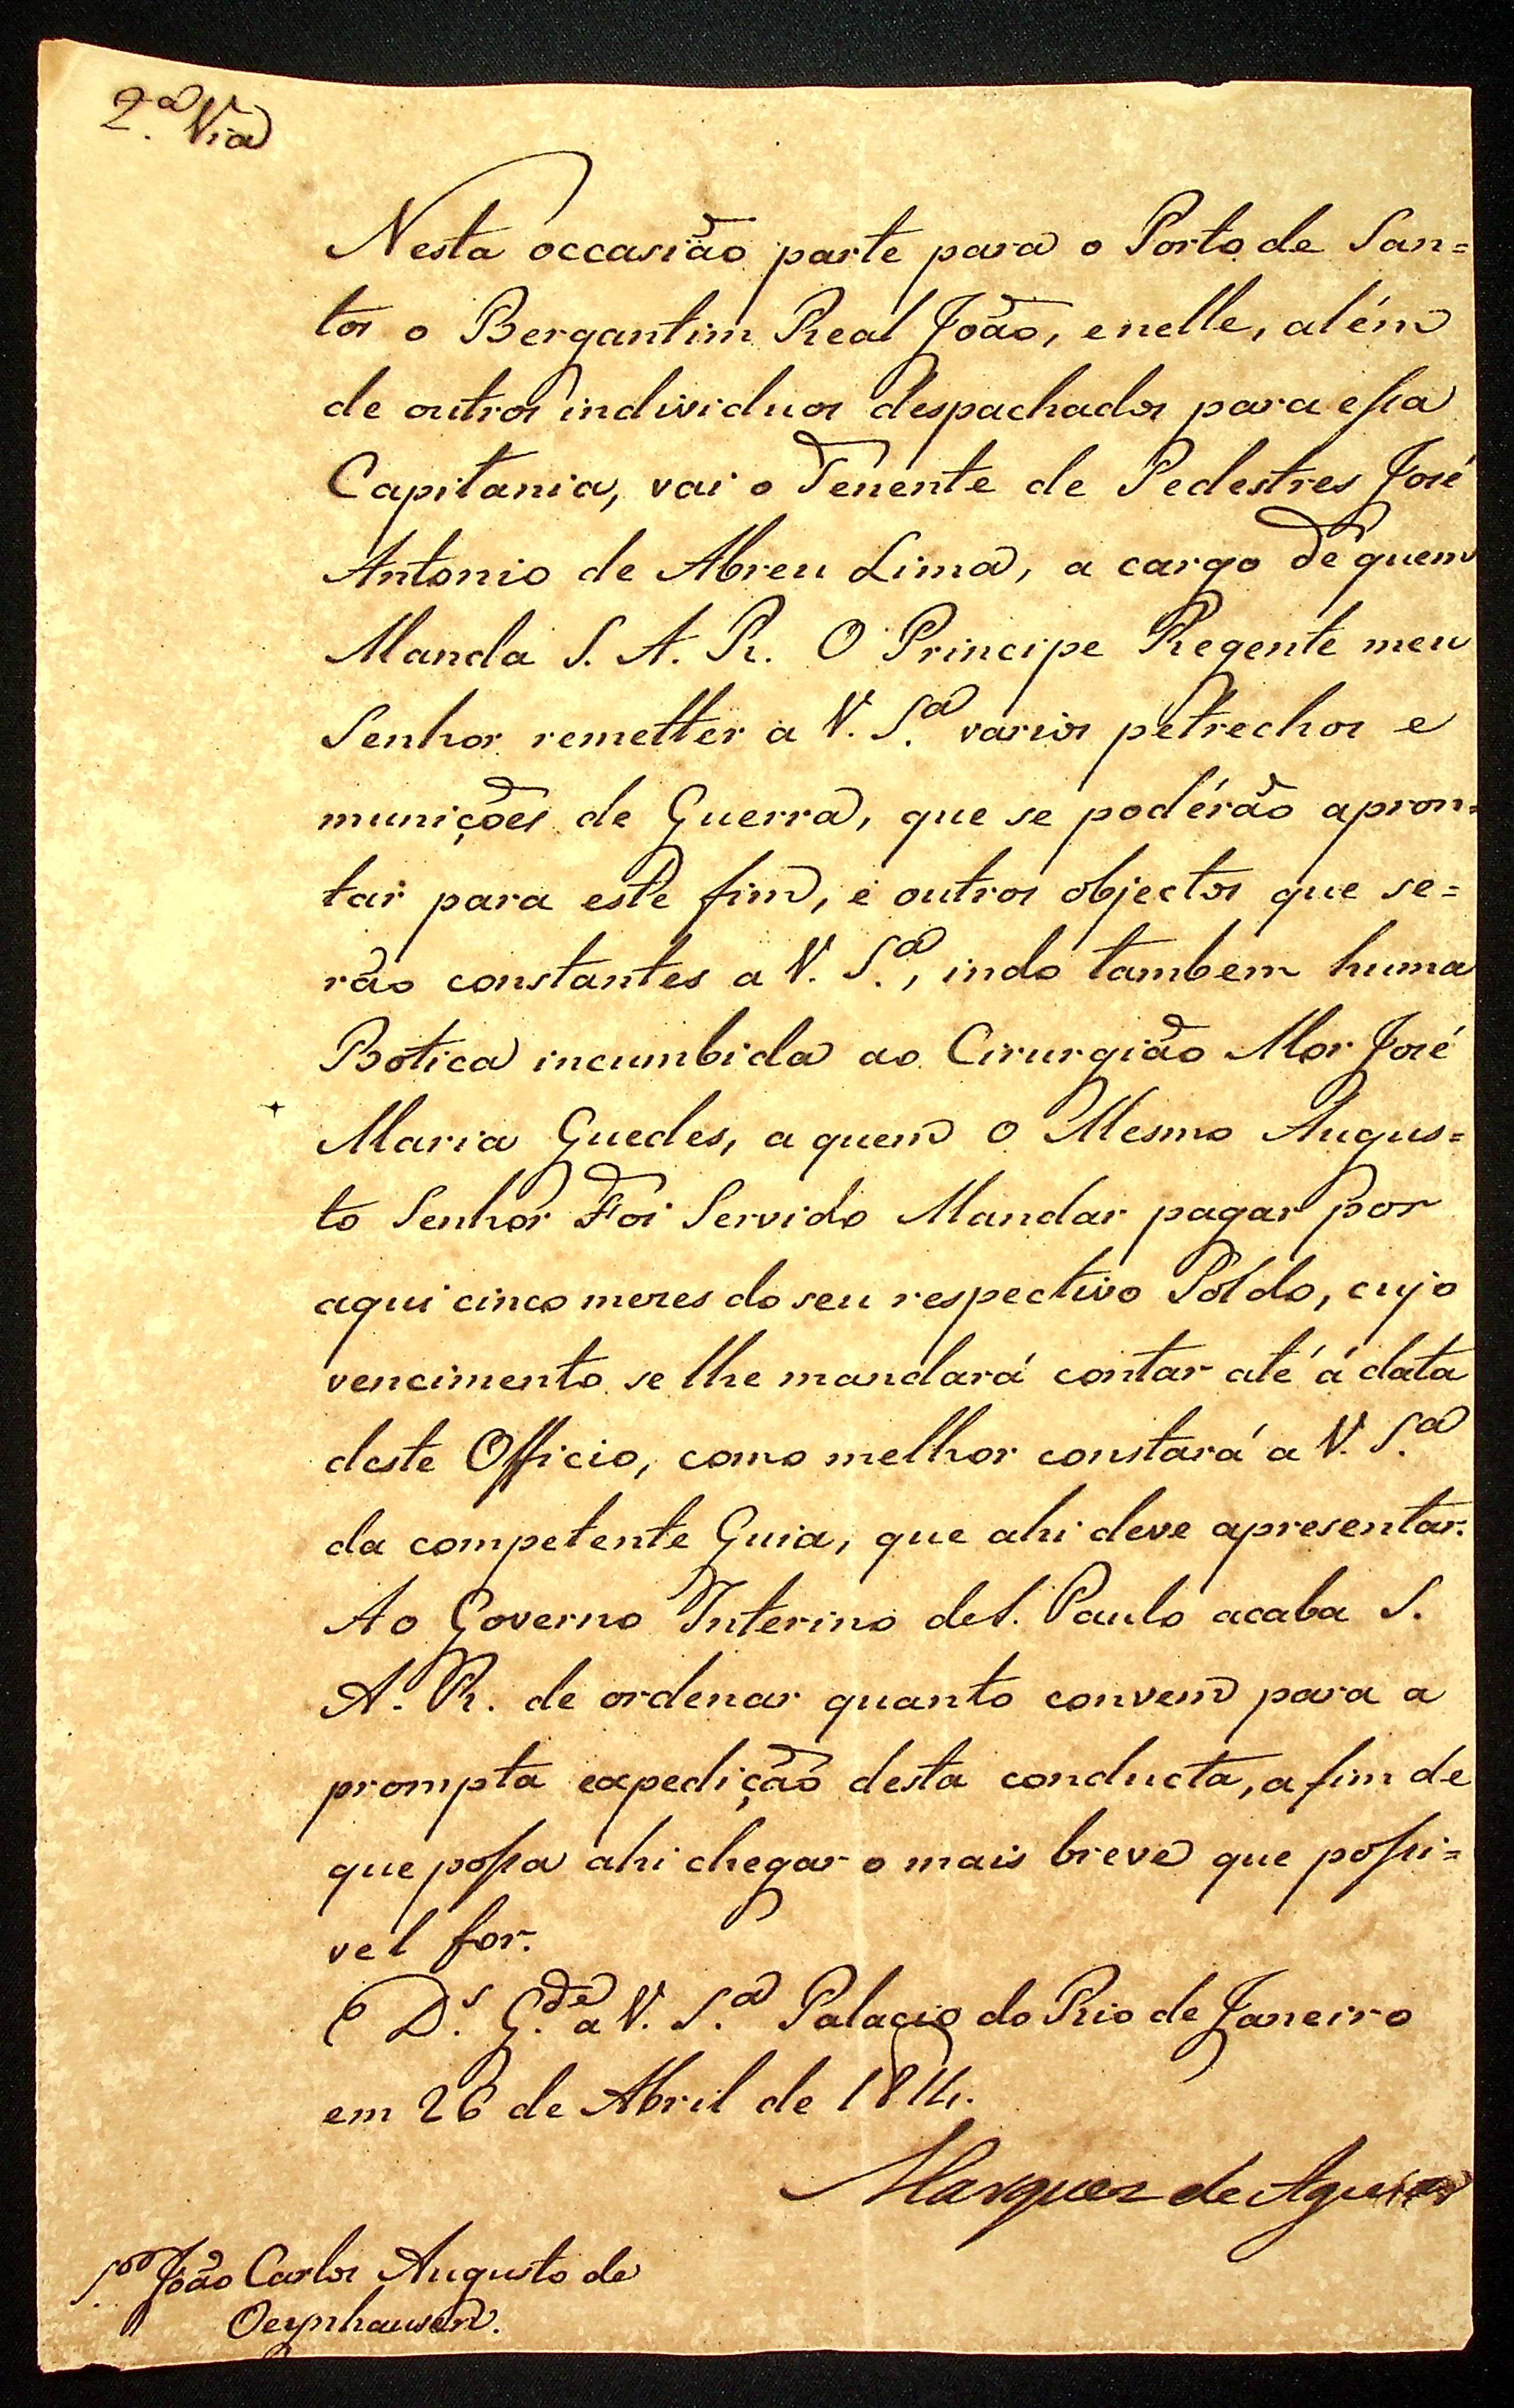 2.ª Via
Nesta occasião parte para o Porto de San=
tos o Bergantim Real João, e nelle, além
de outros individuos despachados para essa
Capitania, vai o Tenente de Pedestres José
Antonio de Abreu Lima, a cargo de quem
Manda S. A. R. O Principe Regente meu
Senhor remetter a V. S.ª varios petrechos e
munições de Guerra, que se podérão apron=
tar para este fim, e outros objectos que se=
rão constantes a V. S.ª, indo tambem huma
Botica incumbida ao Cirurgião Mor José
Maria Guedes, a quem O Mesmo Augus=
to Senhor Foi Servido Mandar pagar por
aqui cinco mezes do seu respectivo Soldo, cujo
vencimento se lhe mandará contar até á data
deste Officio, como melhor constará a V. S.ª
da competente Guia, que ahi deve apresentar.
Ao Governo Interino de S. Paulo acaba S.
A. R. de ordenar quanto convem para a
prompta expedição desta conducta, a fim de
que possa ahi chegar o mais breve que possi=
vel for.
D.s G.de a V. S.ª Palacio do Rio de Janeiro
em 26 de Abril de 1814.
Marquez de Aguiar
S.or João Carlos Augusto de
Oeynhausen.